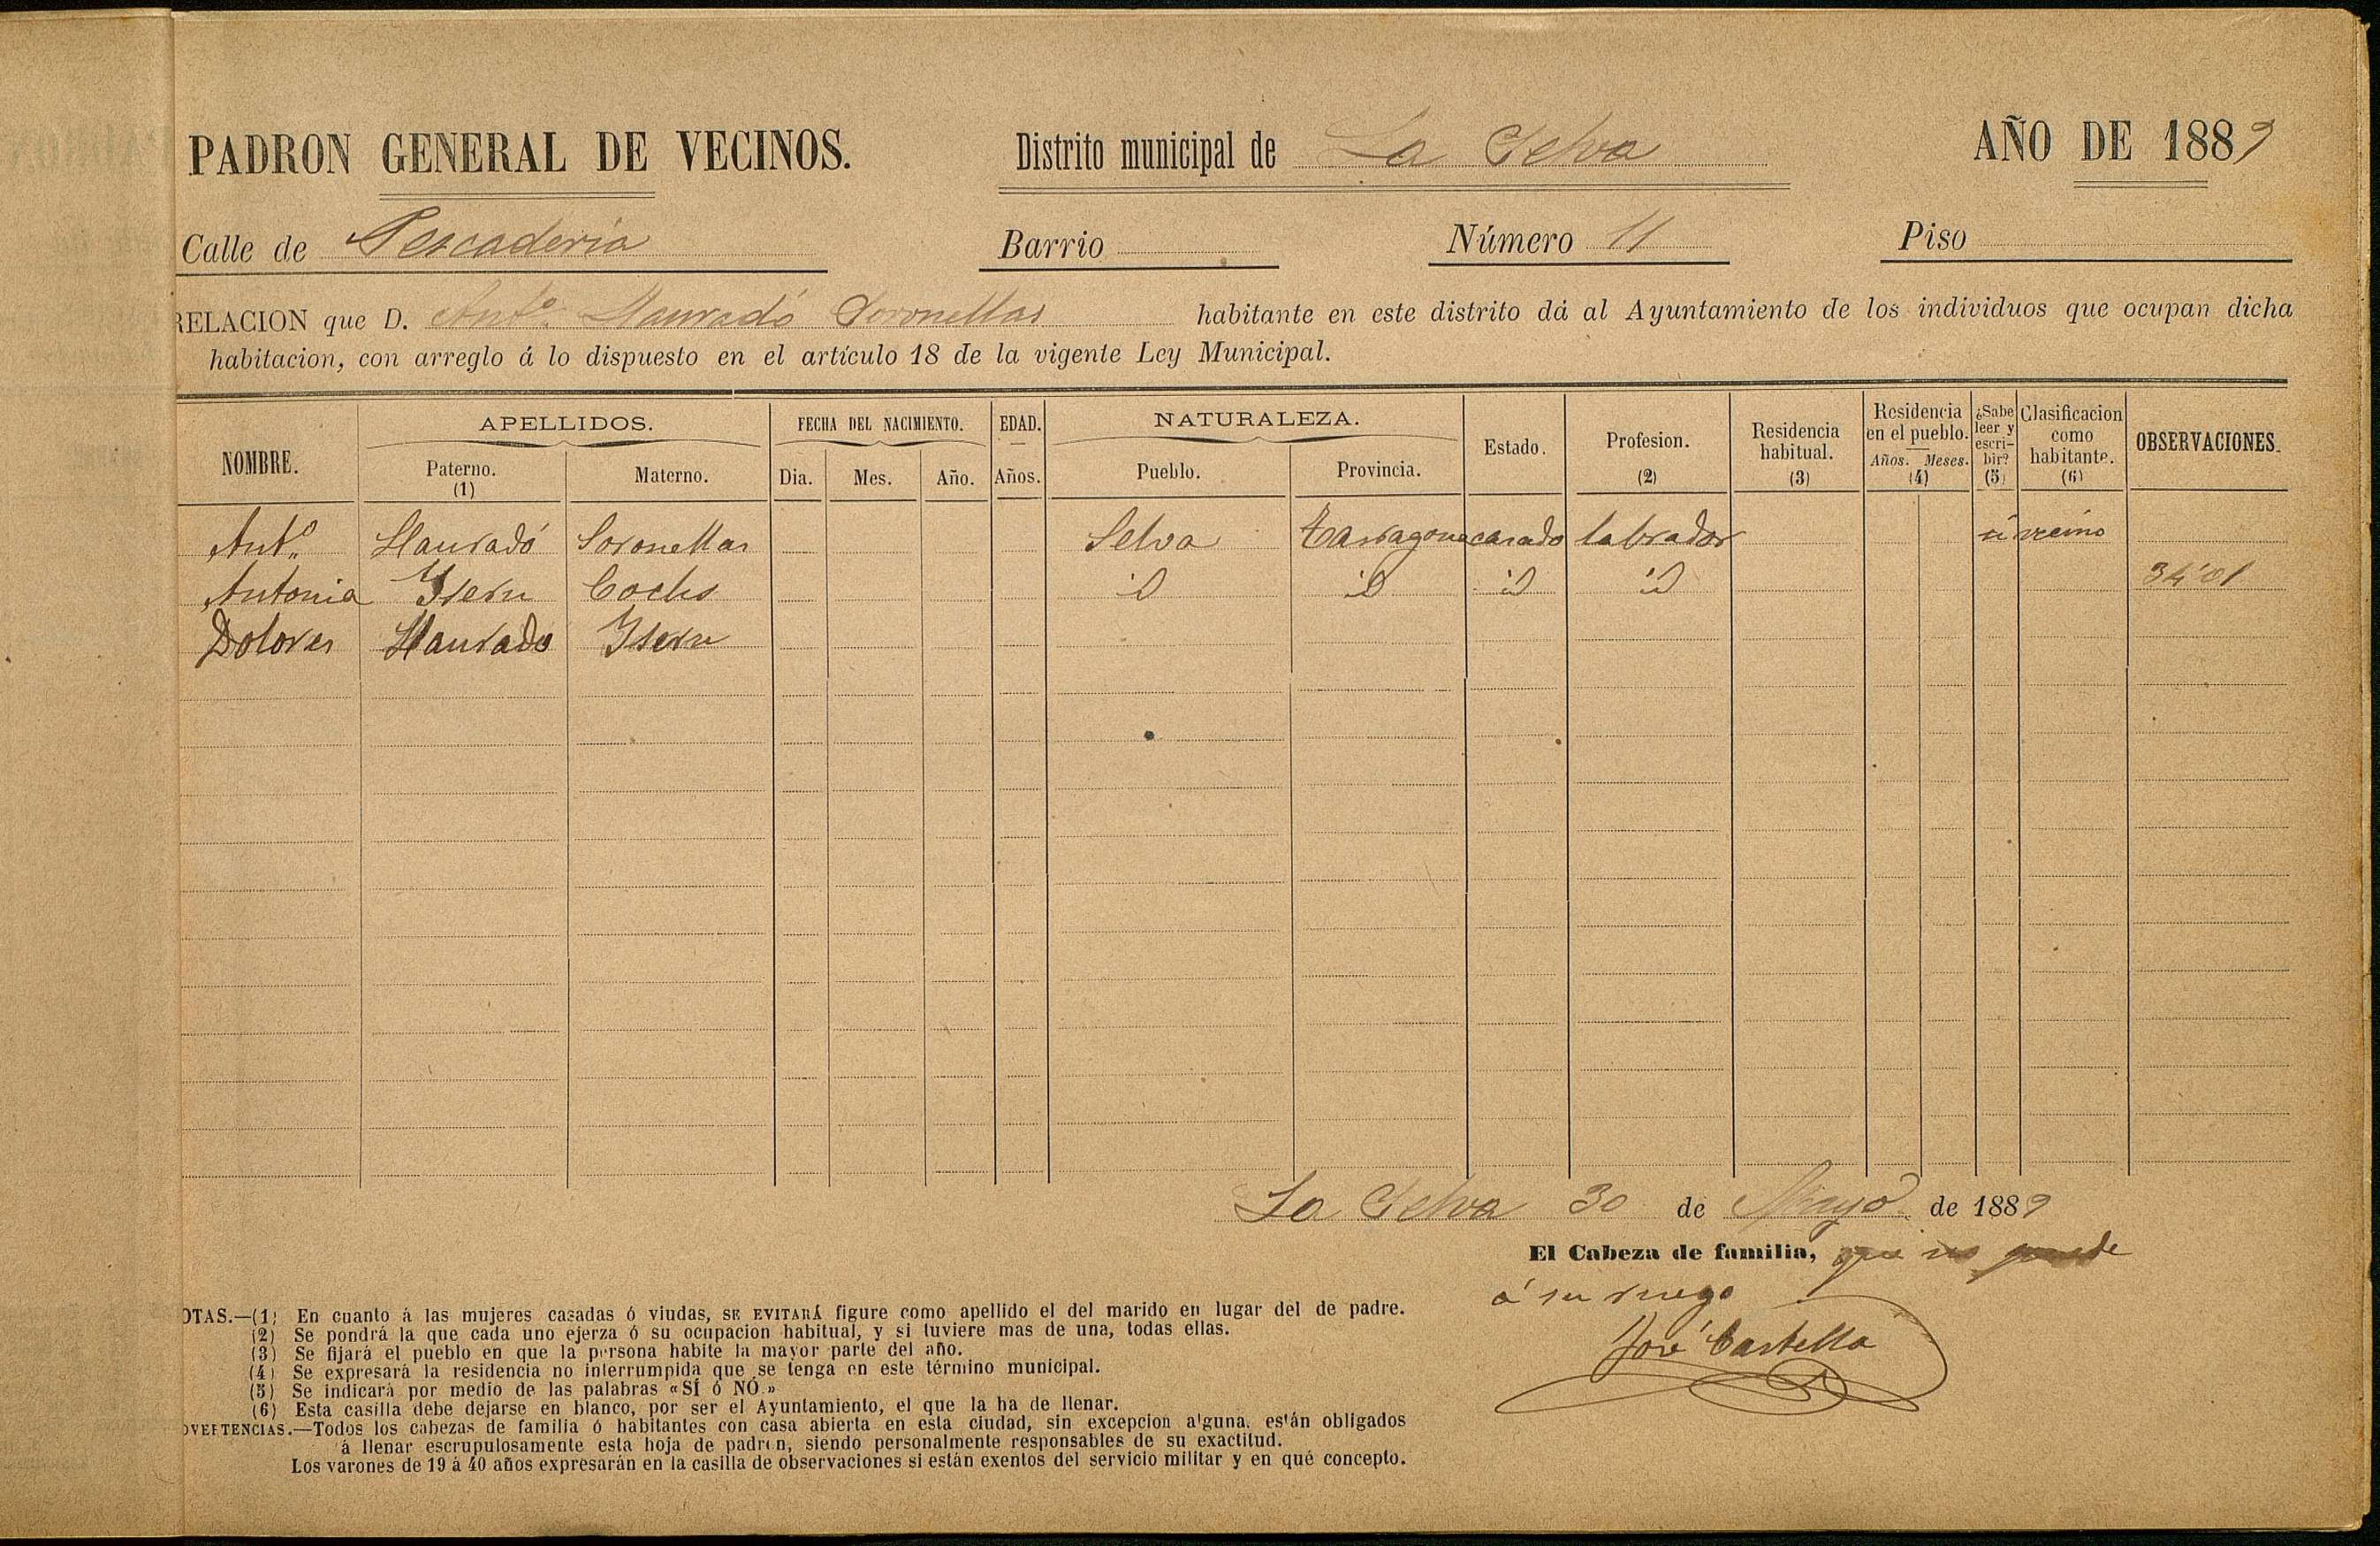 PADRON GENERAL DE VECINOS. Distrito municipal de La Selva AÑO DE 1889
Calle de Pescaderia Barrio Número 11 Piso
RELACION que D. Antº. Llauradó Soronellas habitante en este distrito dá al Ayuntamiento de los individuos que ocupan dicha
habitacion, con arreglo á lo dispuesto en el artículo 18 de la vigente Ley Municipal.
NOMBRE. APELLIDOS. Paterno. (1) Materno. FECHA DEL NACIMIENTO. Dia. Mes. Año. EDAD. Años. NATURALEZA. Pueblo. Provincia. Estado. Profesion. (2) Residencia habitual. (3) Residencia en el pueblo. Años. Meses. (4) ¿Sabe leer y escri- bir? (5) Clasificacion como habitante. (6) OBSERVACIONES.
Antº. Llauradó Soronellas Selva Tarragona casado labrador si vecino
Antonia Ysern Cochs id id id id 34'01
Dolores Llaurado Ysern
La Selva 30 de Mayo de 1889
El Cabeza de familia, que no puede
á su ruego
José Castella
OTAS.—(1) En cuanto á las mujeres casadas ó viudas, SE EVITARÁ figure como apellido el del marido en lugar del de padre.
(2) Se pondrá la que cada uno ejerza ó su ocupacion habitual, y si tuviere mas de una, todas ellas.
(3) Se fijará el pueblo en que la persona habite la mayor parte del año.
(4) Se expresará la residencia no interrumpida que se tenga en este término municipal.
(5) Se indicará por medio de las palabras «SÍ ó NÓ.»
(6) Esta casilla debe dejarse en blanco, por ser el Ayuntamiento, el que la ha de llenar.
DVERTENCIAS.—Todos los cabezas de familia ó habitantes con casa abierta en esta ciudad, sin excepcion alguna, están obligados
á llenar escrupulosamente esta hoja de padron, siendo personalmente responsables de su exactitud.
Los varones de 19 á 40 años expresarán en la casilla de observaciones si están exentos del servicio militar y en qué concepto.